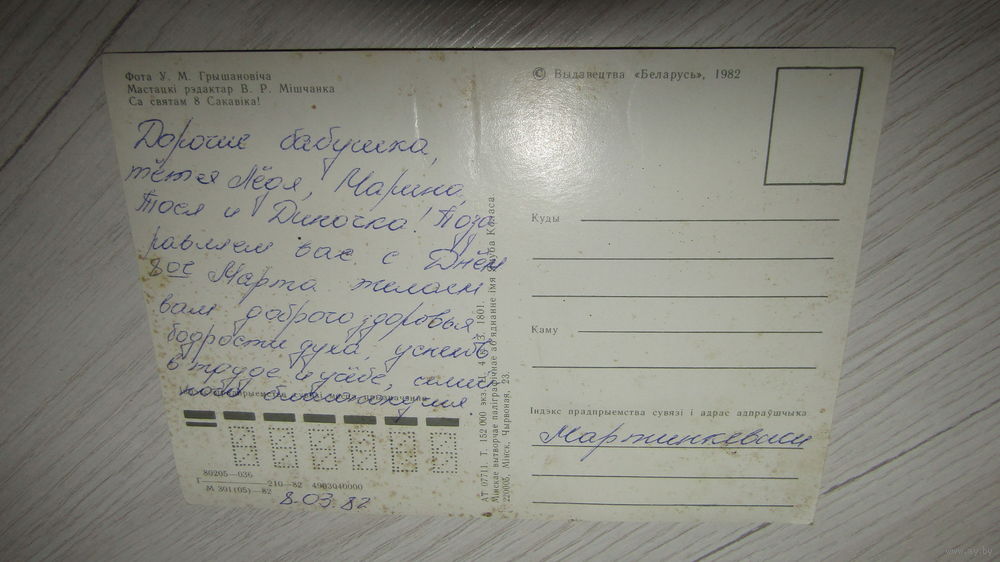 Фота У. М. Грышановіча
Мастацкі рэдактар В. Р. Мішчанка
Са святам 8 Сакавіка!
Дорогие бабушка,
тётя Лёдя, Марина,
Тося и Диночка! Позд
равляем вас с Днём
8ое Марта желаем
вам доброго здоровья
бодрости духа, успехов
в труде и учёбе,
благополучия.
80205—036
210—82 4903040000
М 301(05)—82
8.03.82
АТ 07711. Т. 152 000 экз. 1801.
Мінскае вытворчае паліграфічнае аб'яднанне імя Якуба Коласа
220005, Мінск, Чырвоная, 23.
© Выдавецтва «Беларусь», 1982
Куды
Каму
Індэкс прадпрыемства сувязі і адрас адпраўшчыка
Мартинкевичи
www.ay.by